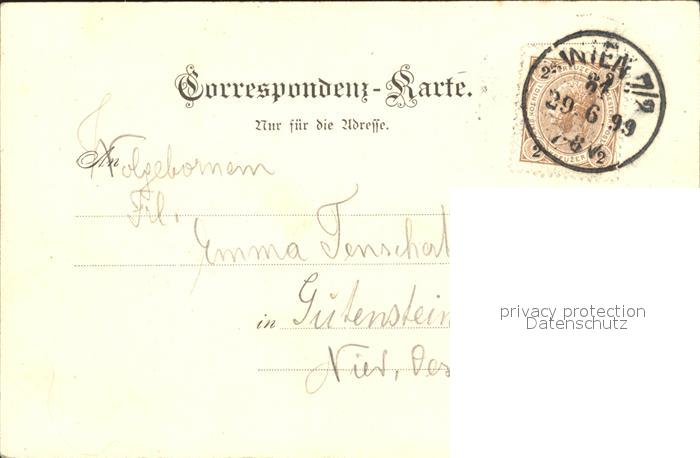 Correspondenz-Karte.
Nur für die Adresse.
WIEN 7/2
29.6.99
2 2
An Wolgebornem
Frl.
Emma Tenschert
in Gutenstein
Nied, Oes
privacy protection
Datenschutz